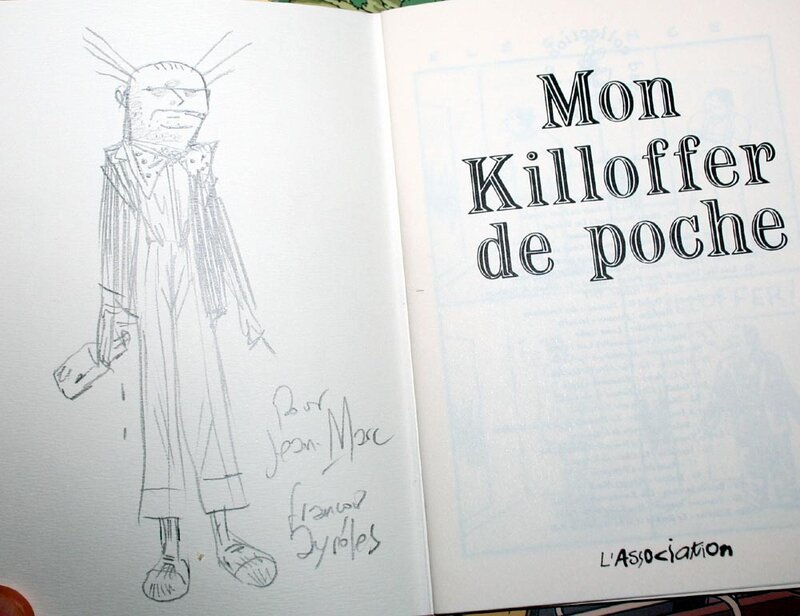 Pour
Jean-Marc
François
Ayroles
Mon
Killoffer
de poche
L'Association